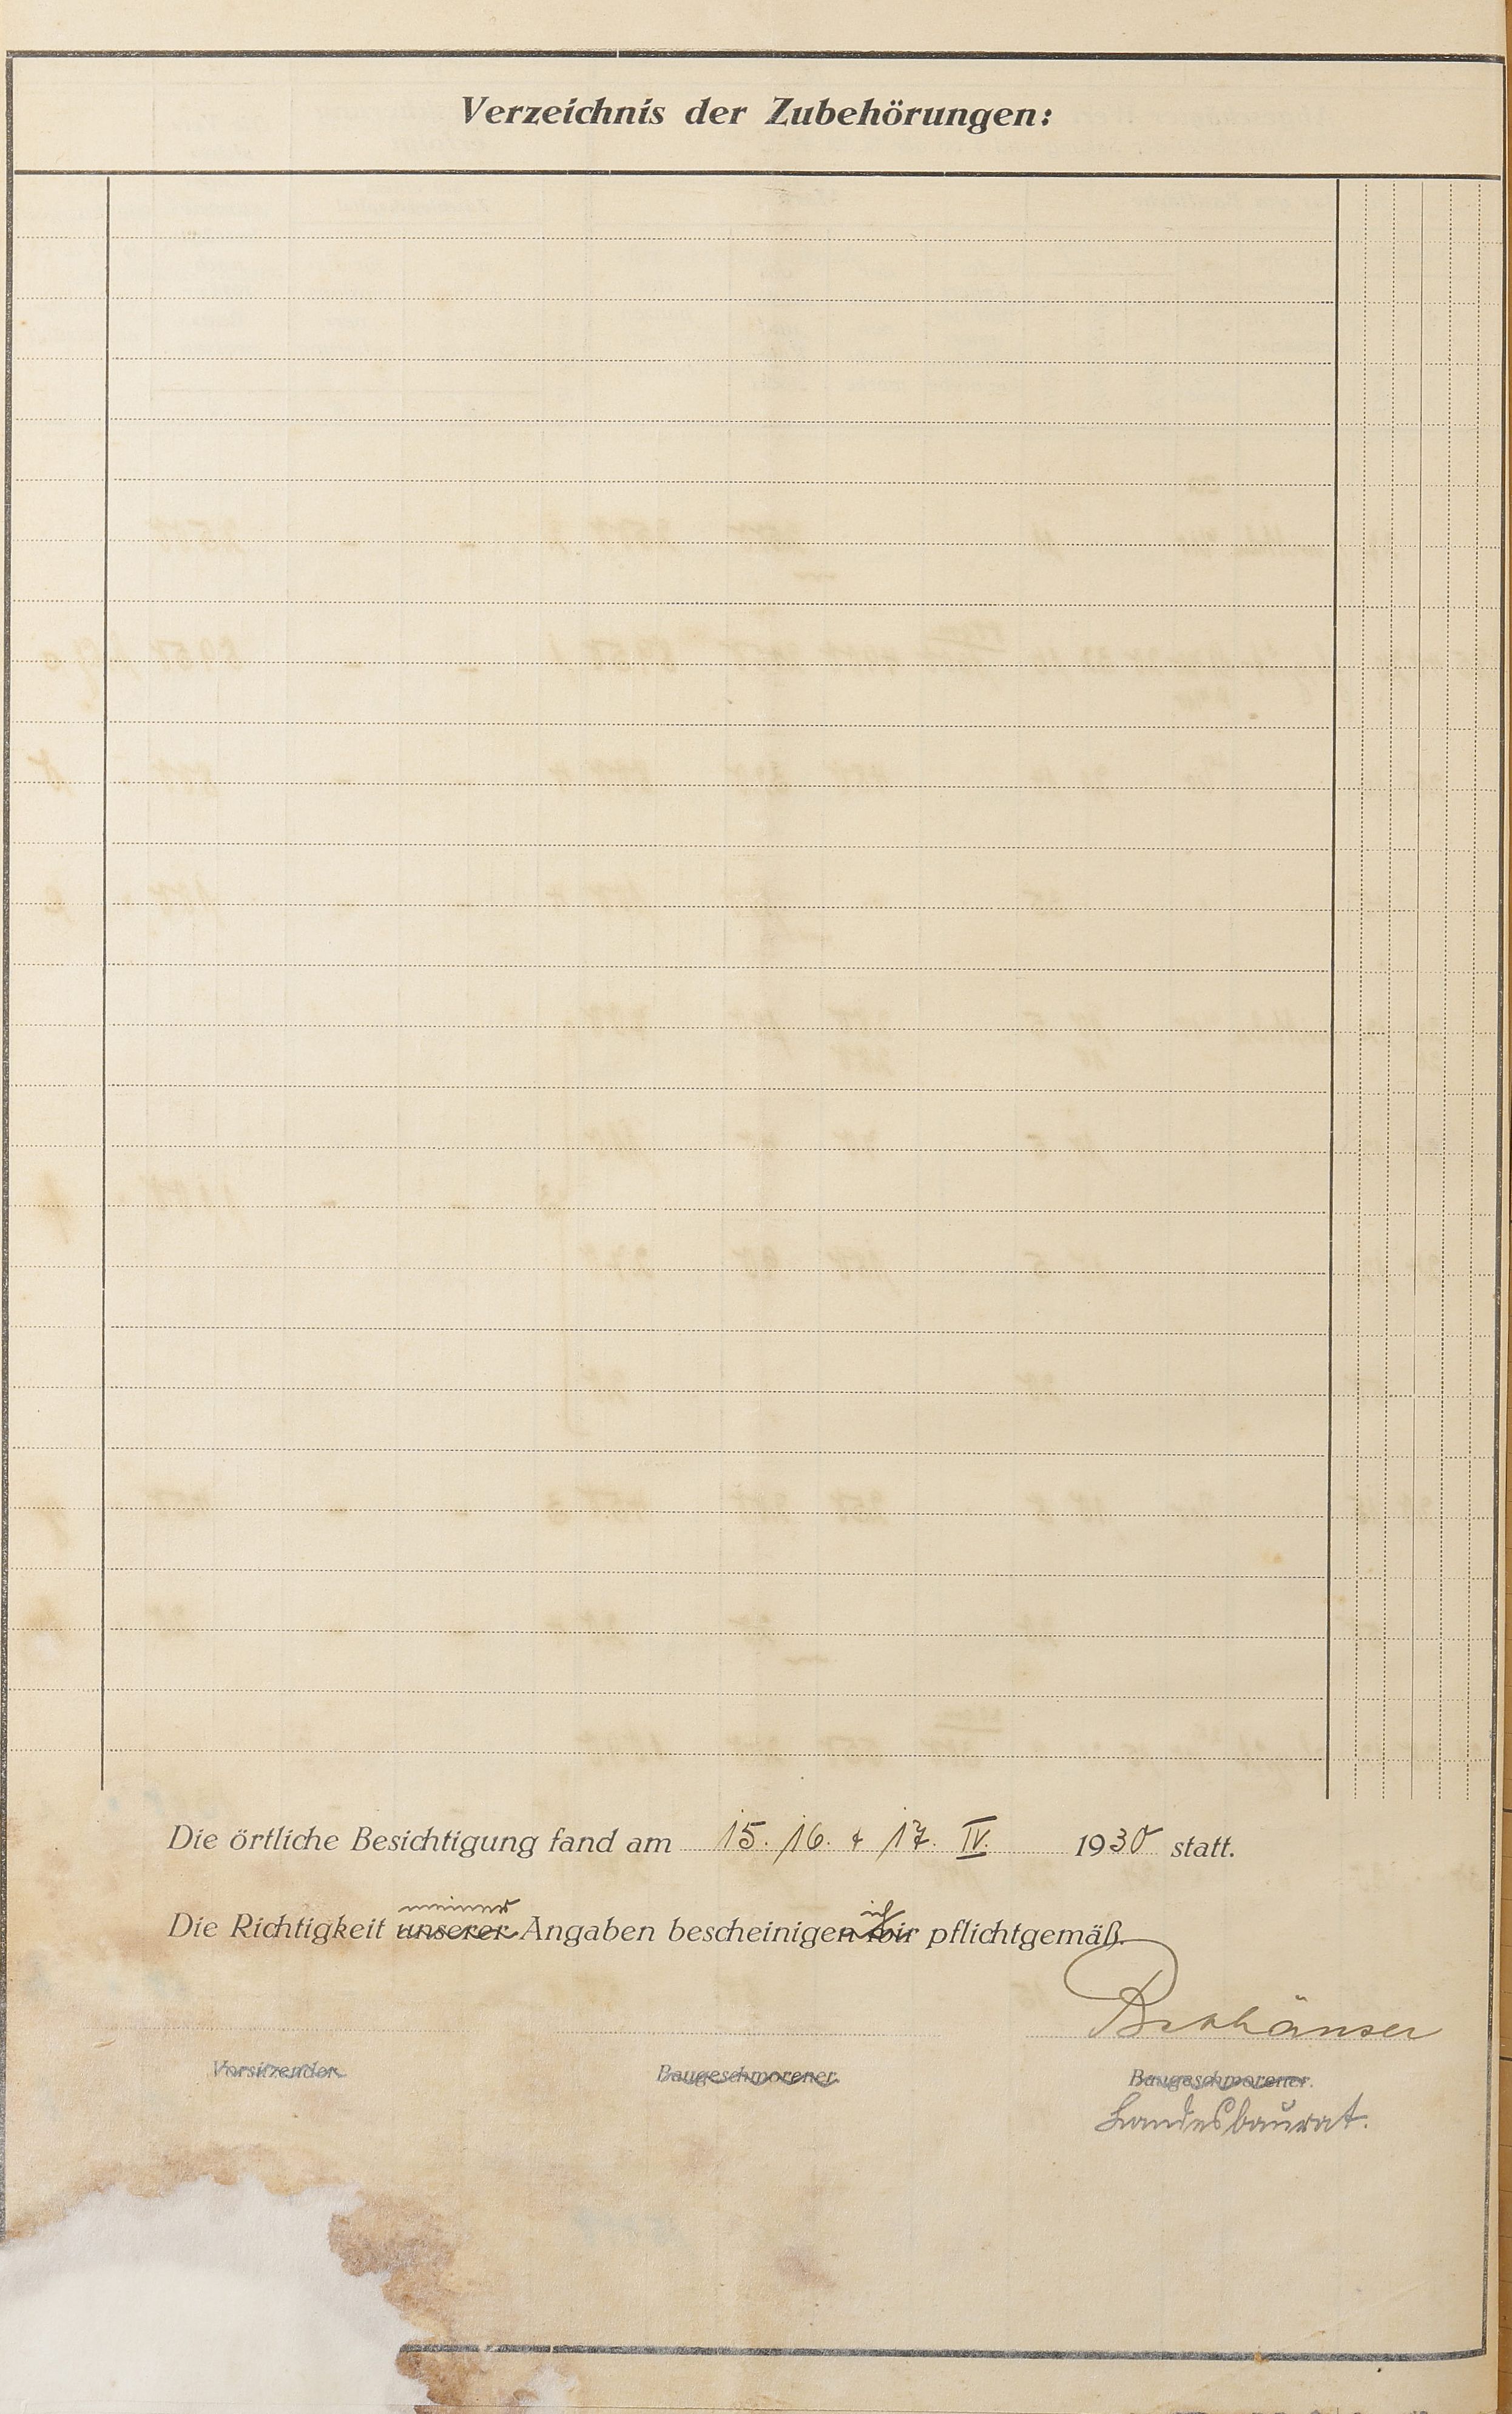 Verzeichnis der Zubehörungen:
Die örtliche Besichtigung fand am 15. 16. & 17. IV. 1930 statt.
meiner ich
Die Richtigkeit unserer Angaben bescheinigen wir pflichtgemäß.
Vorsitzender. Baugeschworener. Baugeschworener.
Landesbaurat.